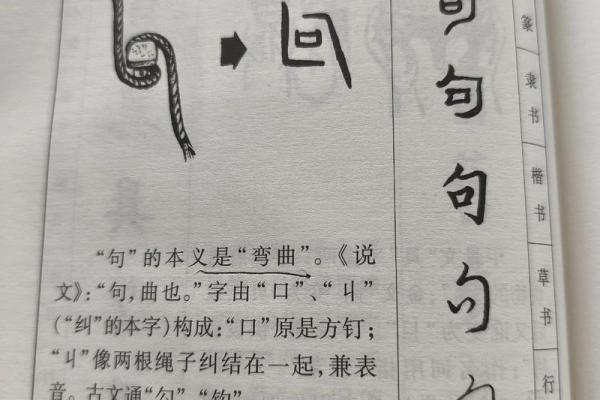 “句”的本义是“弯曲”。《说
文》：“句，曲也。”字由“口”、“丩”
（“纠”的本字）构成：“口”原是方钉；
“丩”像两根绳子纠结在一起，兼表
音。古文通“勾”、“钩”
句
句
句
句
句
篆
隶书
楷书
草书
行